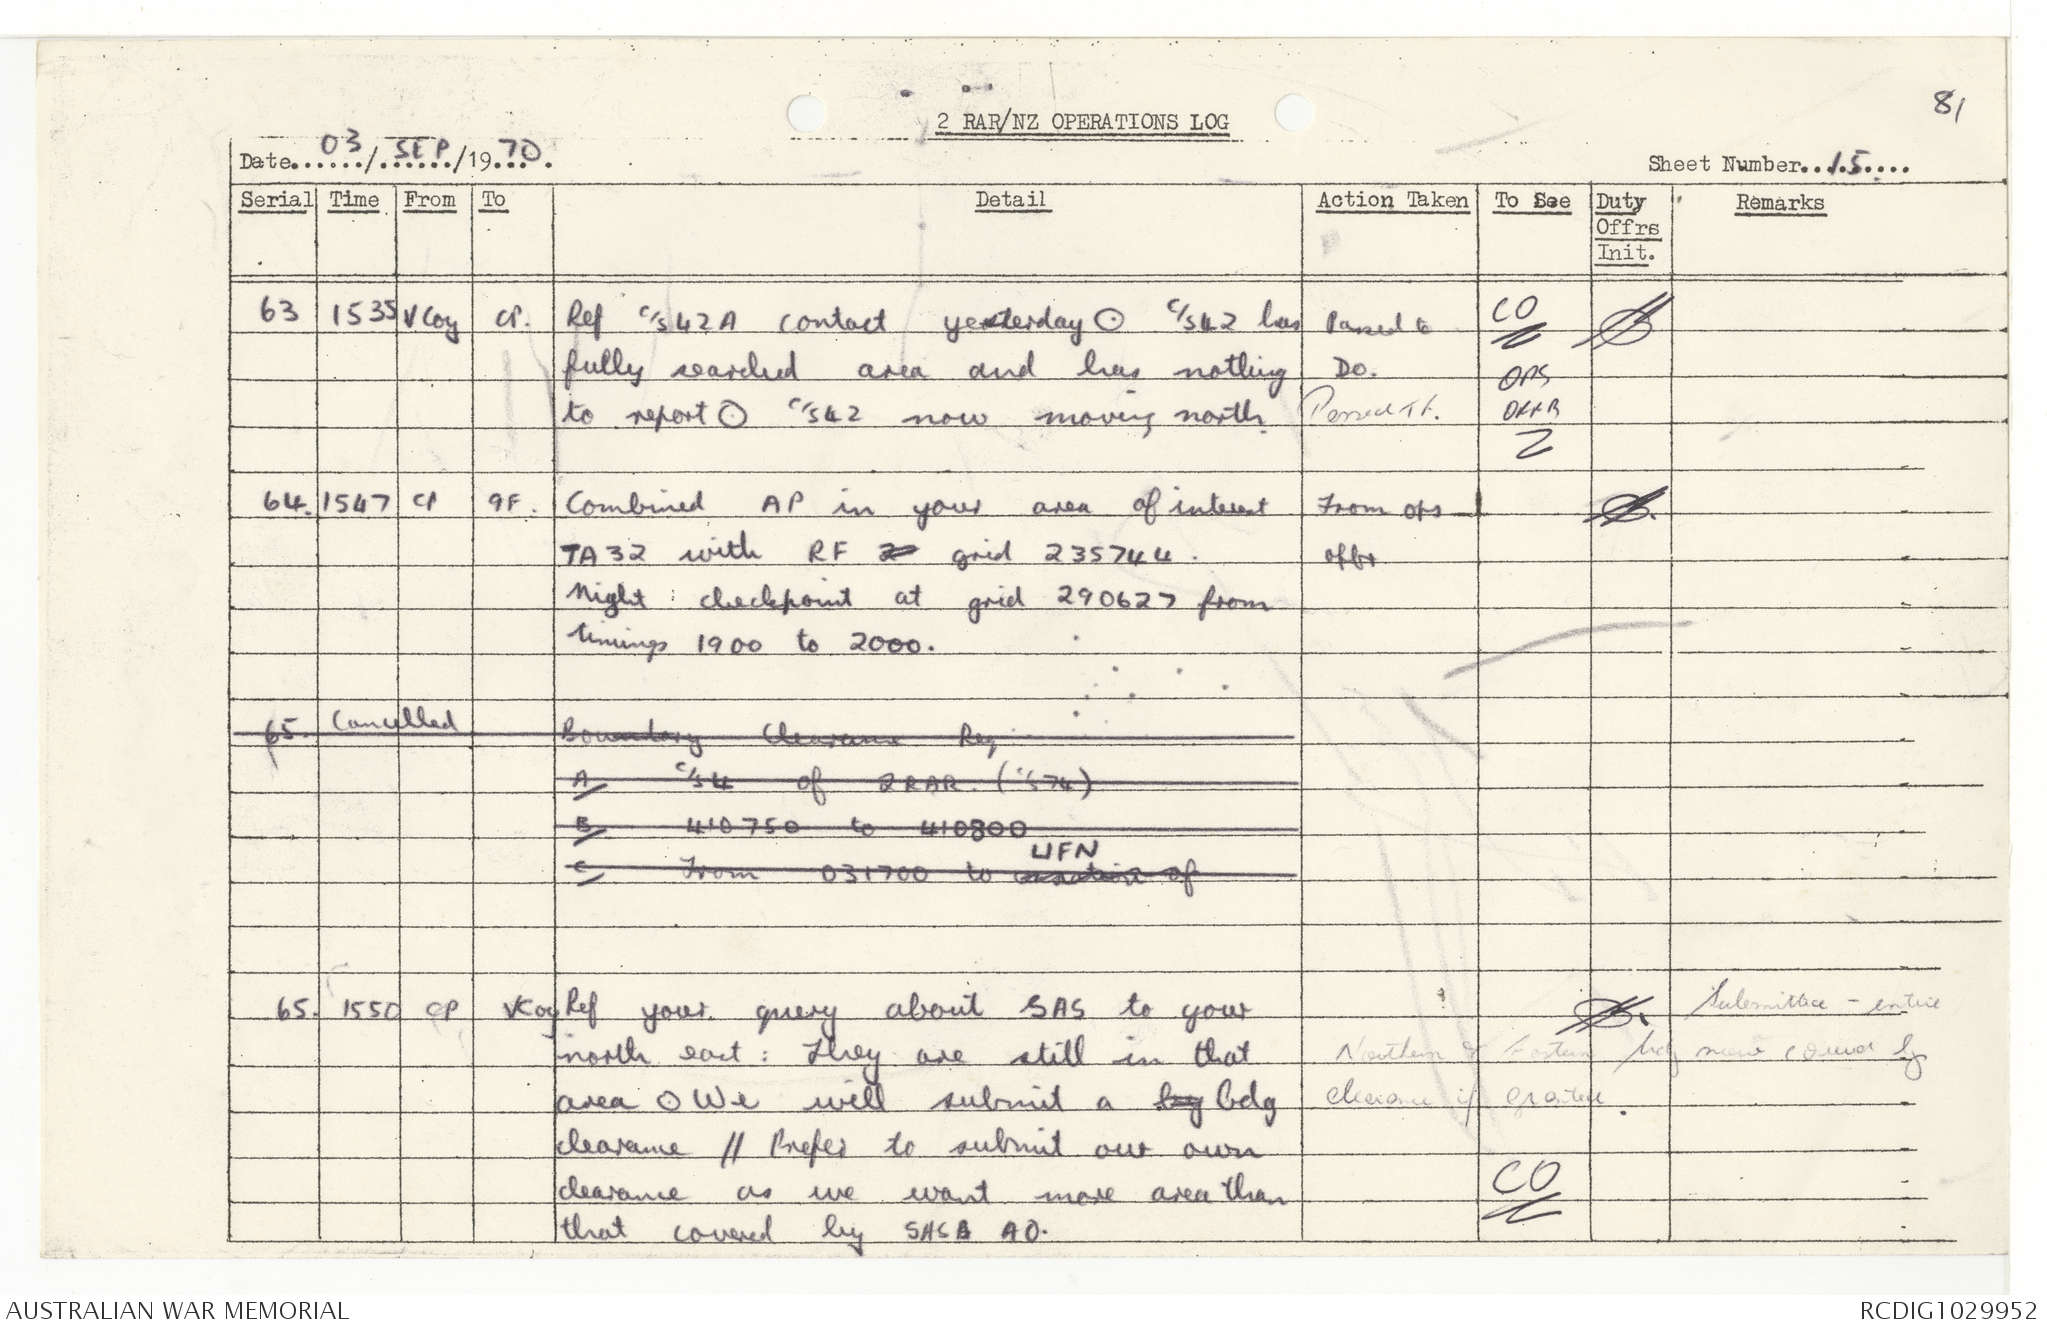 81
2 RAR/NZ OPERATIONS LOG
Date 03/SEP/1970.
Sheet Number 15
Serial Time From To Detail Action Taken To See Duty Offrs Init. Remarks
63 1535 V Coy CP. Ref C/S 42A contact yesterday ⊙ C/S 42 has Passed to CO
fully searched area and has nothing DO. OPS
to report ⊙ C/S 42 now moving north. Passed TF. OFFR
64. 1547 CP 9F. Combined AP in your area of interest From ops
TA32 with RF grid 235744. offr
Night: checkpoint at grid 290627 from
timings 1900 to 2000.
65. Cancelled Boundary Clearance Req
A C/S 4 of 2RAR. (C/S 74)
B 410750 to 410800
UFN
C From 031700 to of
65. 1550 CP V Coy Ref your query about SAS to your Submitted - entire
north east: They are still in that Northern & Eastern bdy now covered by
area ⊙ We will submit a bdg clearance if granted.
clearance // Prefer to submit our own
clearance as we want more area than CO
that covered by SAS AO.
AUSTRALIAN WAR MEMORIAL
RCDIG1029952